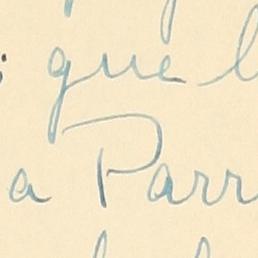 que
a Parr